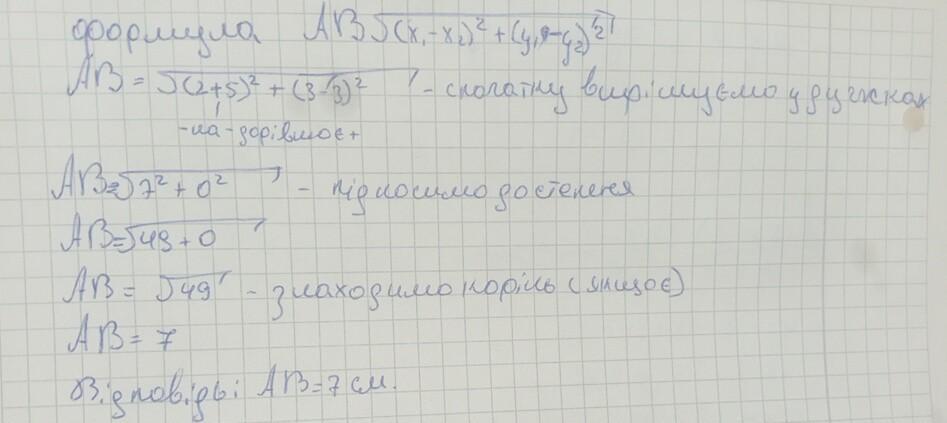 формула AB√(x₁-x₂)²+(y₁-y₂)²
AB = √(2+5)² + (3-3)² - спочатку вирішуємо у дужках
-на-дорівнює+
AB=√7²+0² - підносимо до степеня
AB=√49+0
AB = √49 - знаходимо корінь (якщо є)
AB = 7
Відповідь: AB=7см.